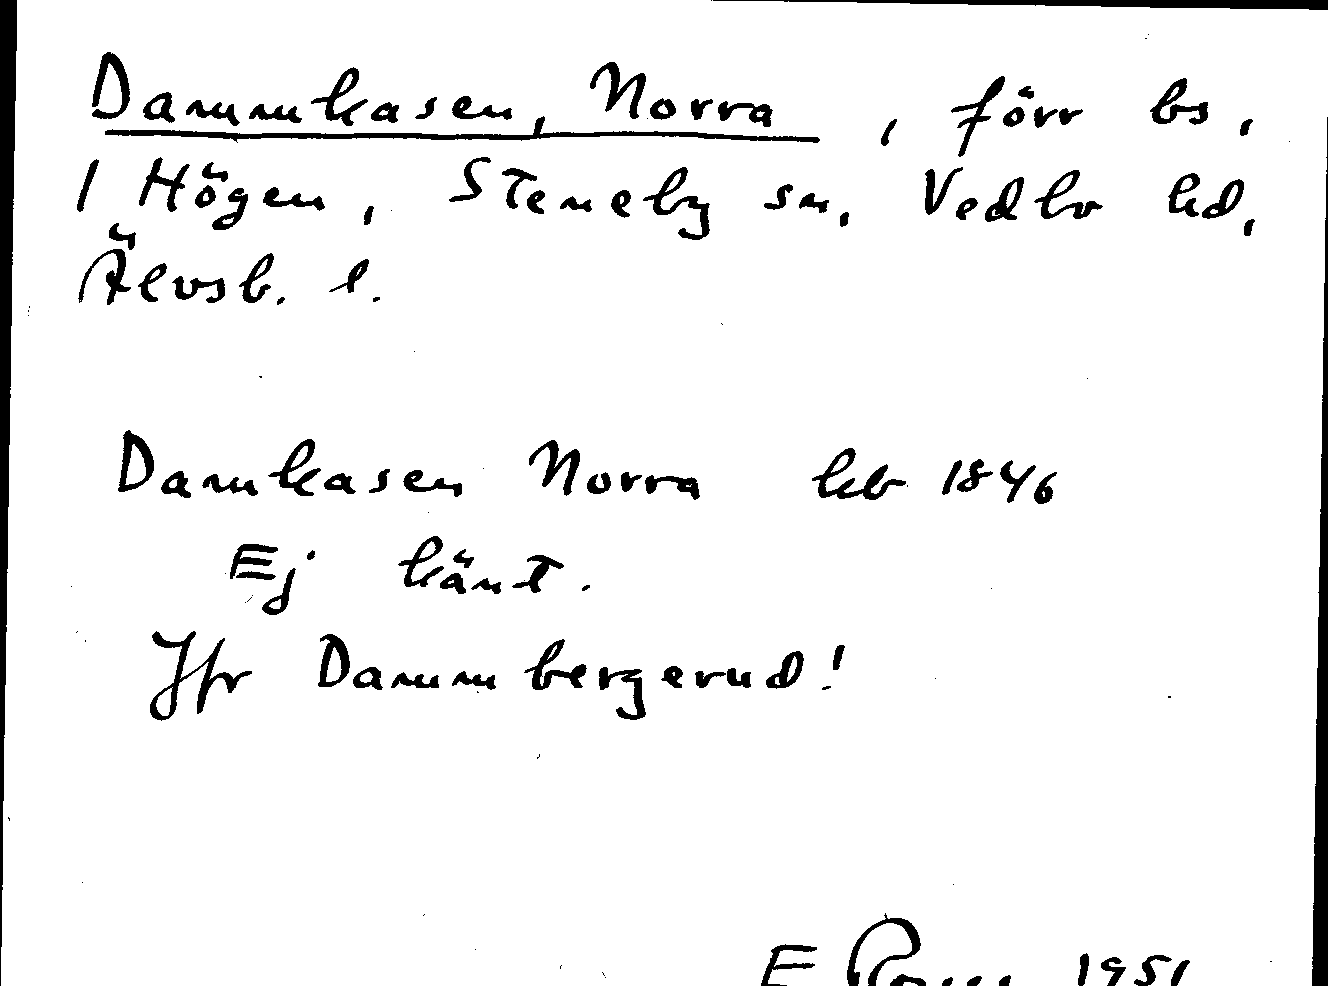 Dammkasen, Norra, förr bs,
1 Högen, Steneby sn, Vedbo hd,
Älvsb. l.
Damkasen Norra hb 1846
Ej känt.
Jfr Dammbergerud!
E 1951